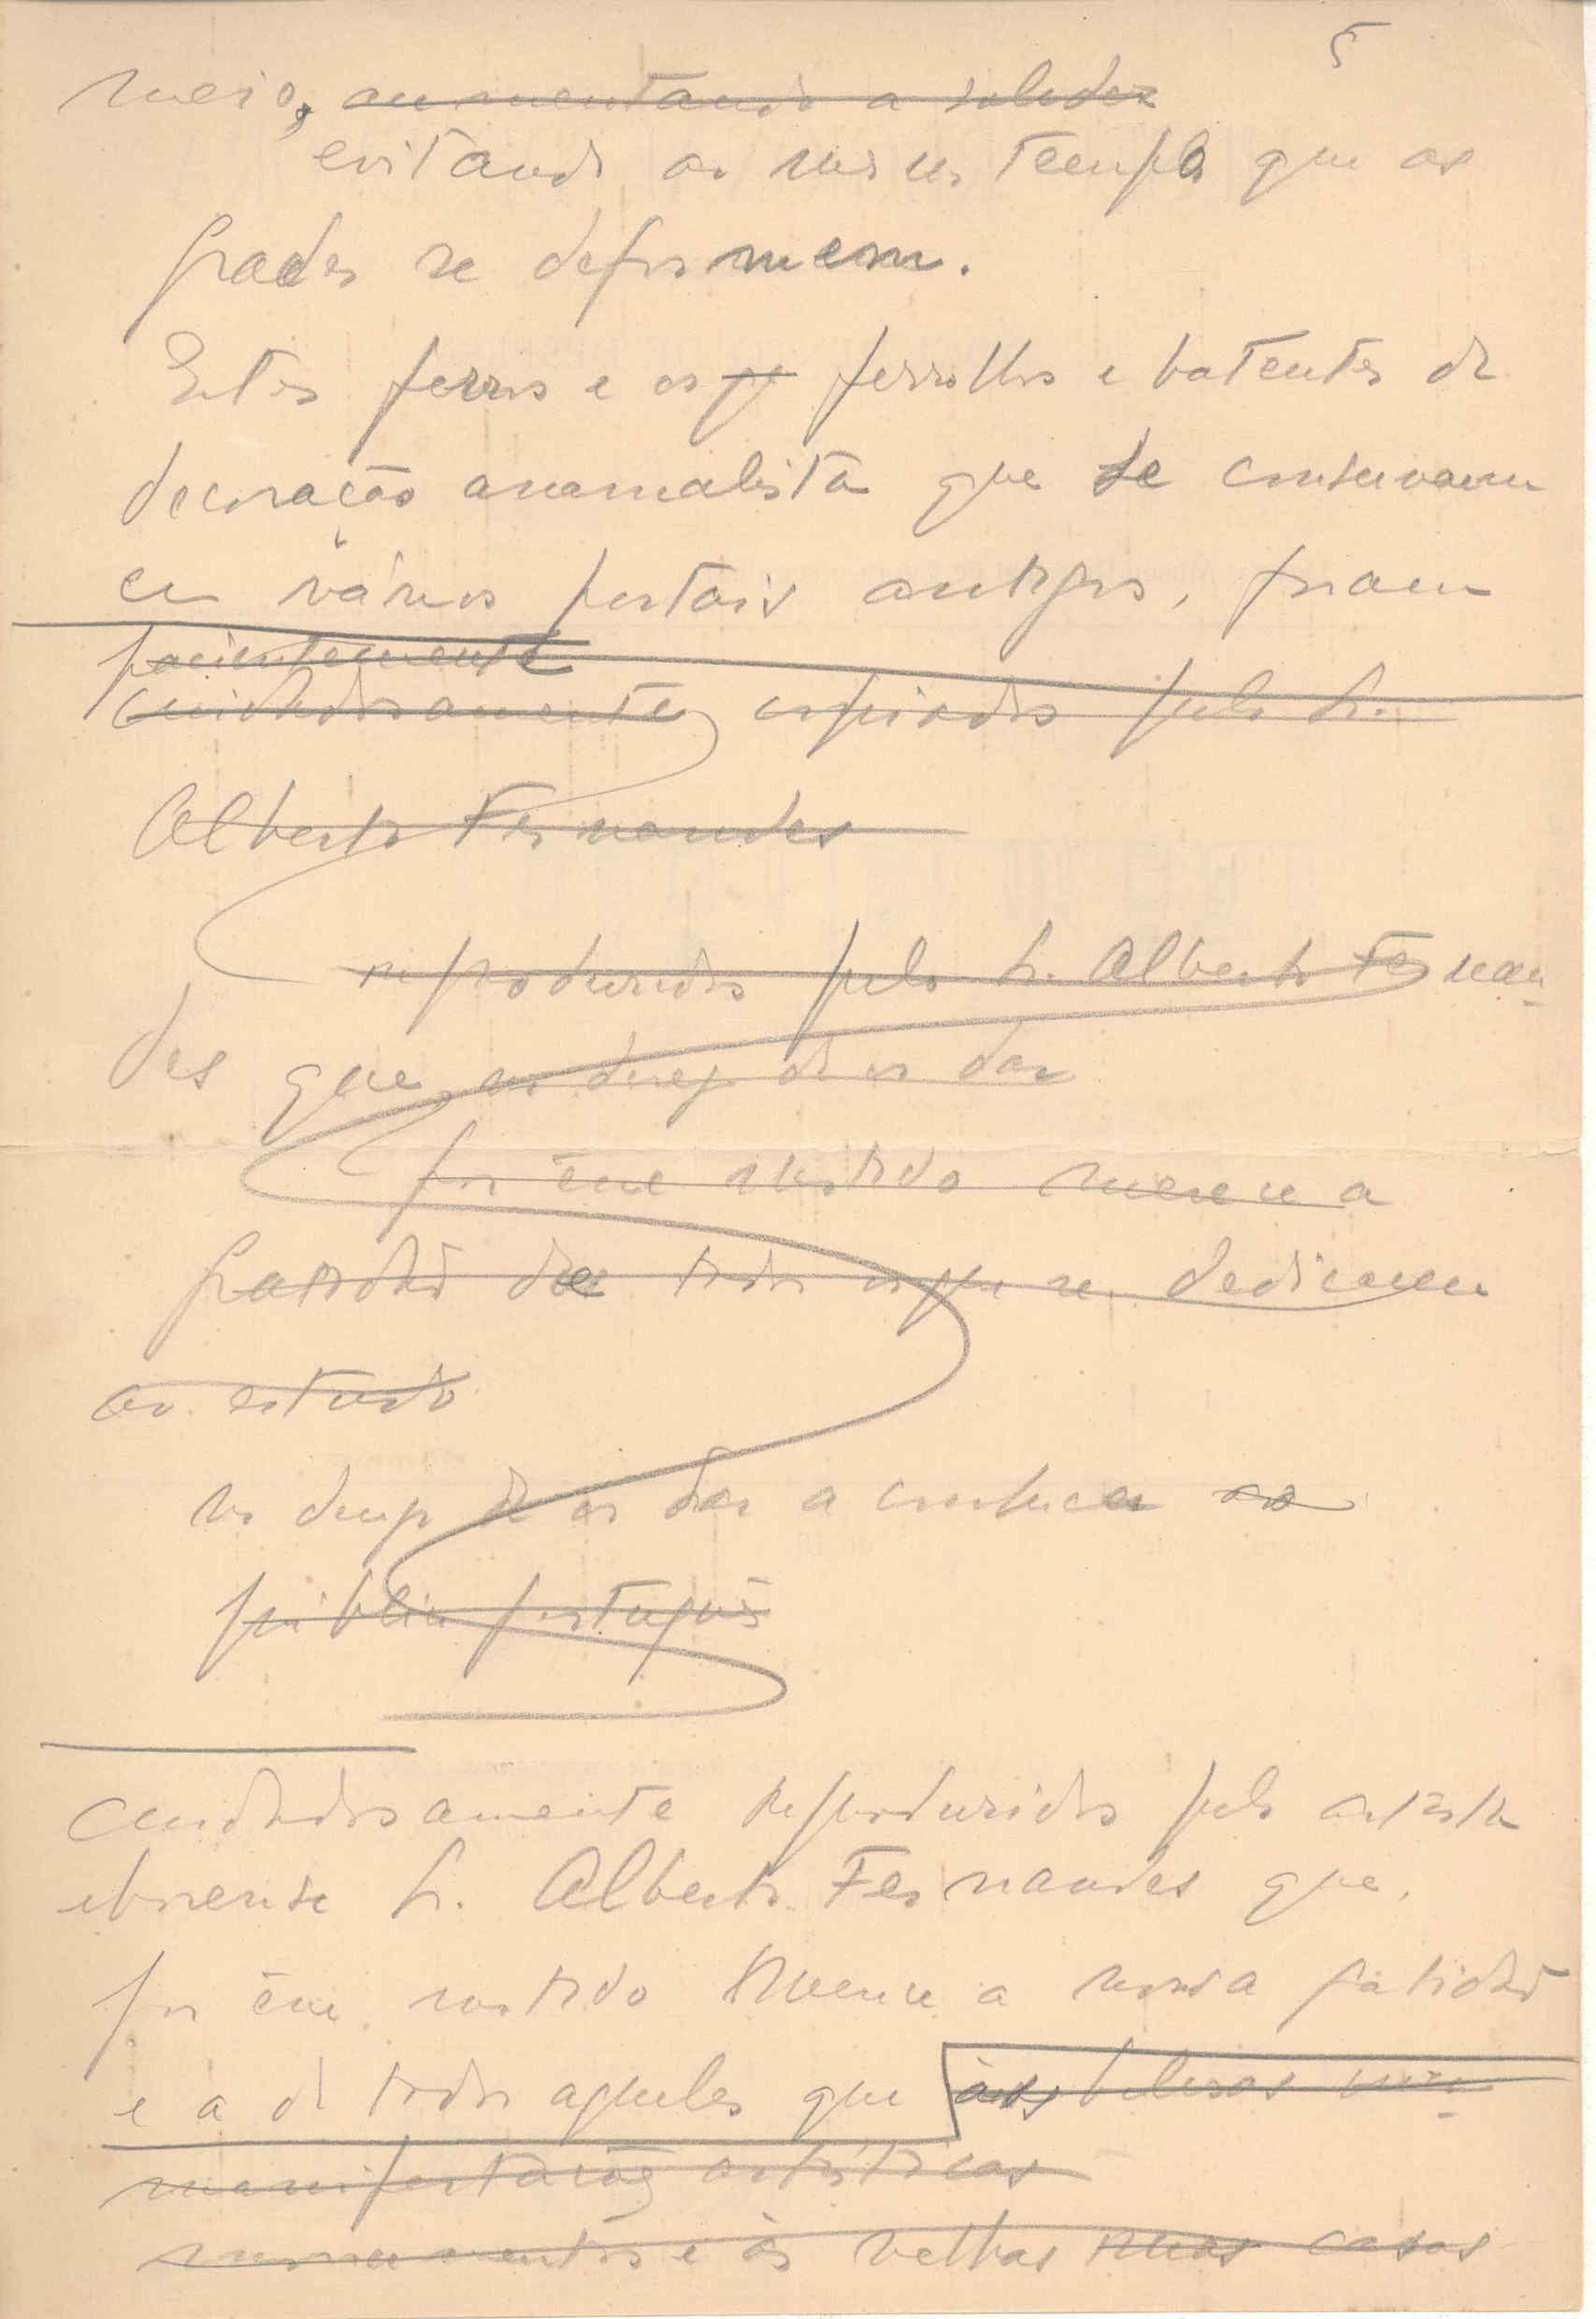 5
meio, aumentando a solidez
evitando ao mesmo tempo que as
grades se deformem.
Estes ferros e os ferrolhos e batentes de
decoração animalista que se conservam
em vários portais antigos, foram
pacientemente
cuidadosamente copiados pelo Sr.
Alberto Fernandes
reproduzidos pelo Sr. Alberto Fernan-
des que, ao desejo de os dar
por êsse motivo merece a
gratidão de todos os que se dedicam
ao estudo
no desejo de os dar a conhecer ao
público português
cuidadosamente reproduzidos pelo artista
eborense Sr. Alberto Fernandes que,
por êsse motivo merece a nossa gratidão
e a de todos aqueles que às belezas
manifestações artísticas
monumentos e às velhas ruas casas